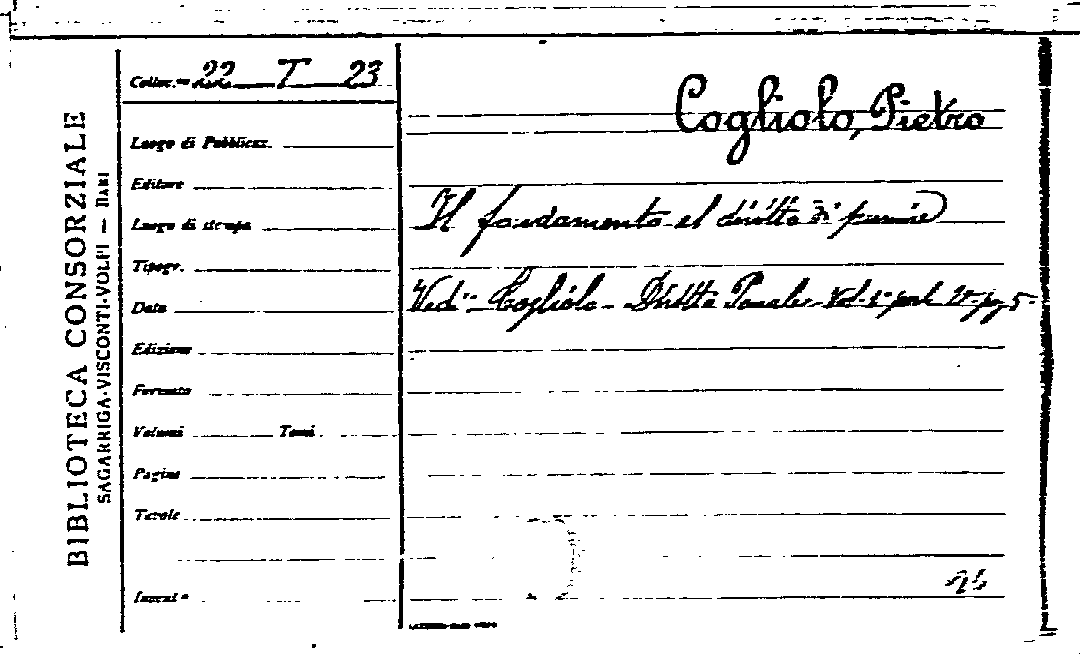 BIBLIOTECA CONSORZIALE
SAGARRIGA-VISCONTI-VOLPI — BARI
Colloc.ne 22 T 23
Luogo di Pubblicaz.
Editore
Luogo di stampa
Tipogr.
Data
Edizione
Formato
Volumi Tomi
Pagine
Tavole
Cogliolo, Pietro
Il fondamento el diritto di punire
Vedi: Cogliolo - Diritto Penale - Vol. 1º part. 2ª pg. 5